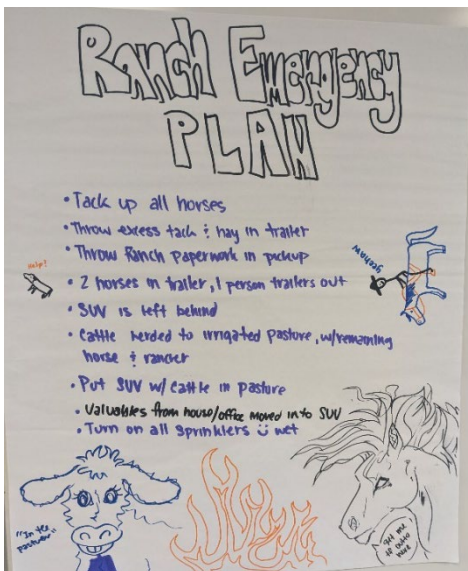 Ranch Emergency
PLAN
• Tack up all horses
• Throw excess tack & hay in trailer
• Throw Ranch paperwork in pickup
• 2 horses in trailer, 1 person trailers out
• SUV is left behind
• Cattle herded to irrigated pasture, w/remaining
horse & rancher
• Put SUV w/ cattle in pasture
• Valuables from house/office moved in to SUV
• Turn on all sprinklers wet
yeehaw
"In the
pasture"
get me
outta
here